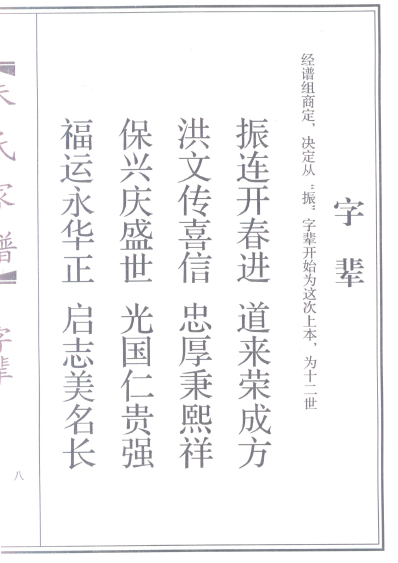 字辈
经谱组商定，决定从“振”字辈开始为这次上本，为十二世
振连开春进 道来荣成方
洪文传喜信 忠厚秉熙祥
保兴庆盛世 光国仁贵强
福运永华正 启志美名长
氏家谱
字辈
八